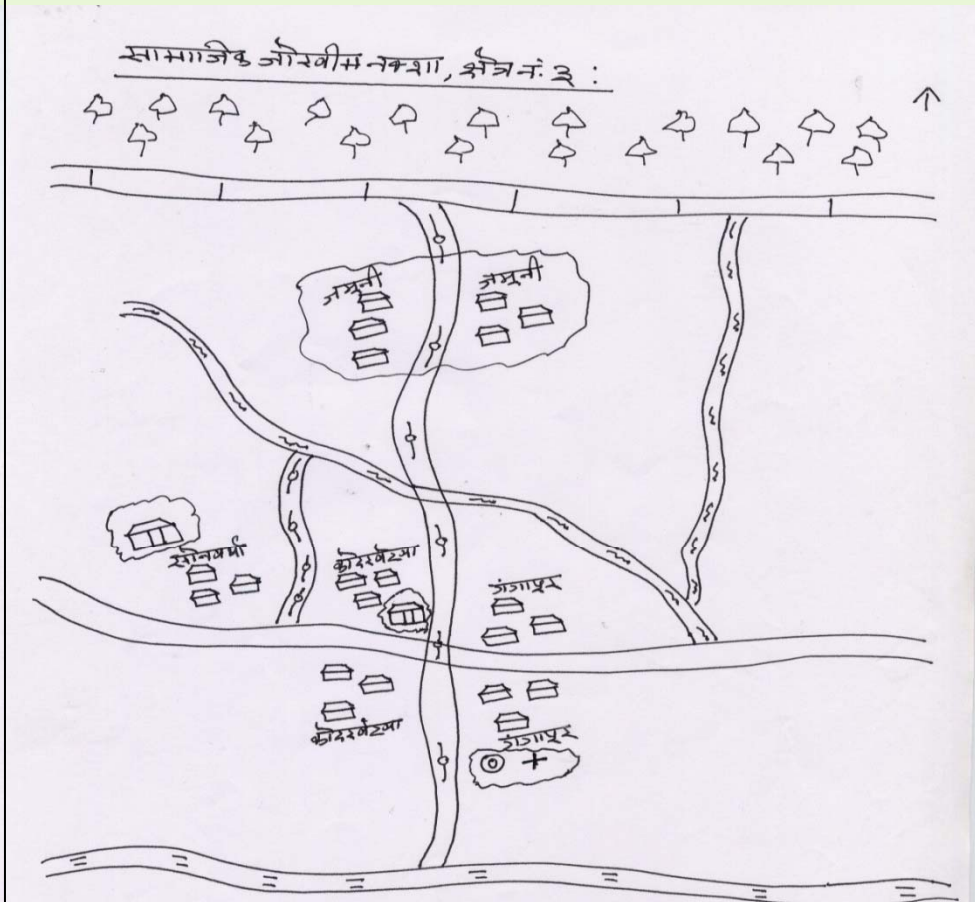 सामाजिक जोखीम नक्शा, क्षेत्र नं. ३ :
जमुनी
जमुनी
सोनवर्षा
कोदरबेटवा
गंगापुर
कोदरबेटवा
गंगापुर